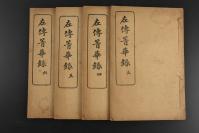 左傳菁華錄 三
左傳菁華錄 四
左傳菁華錄 五
左傳菁華錄 六